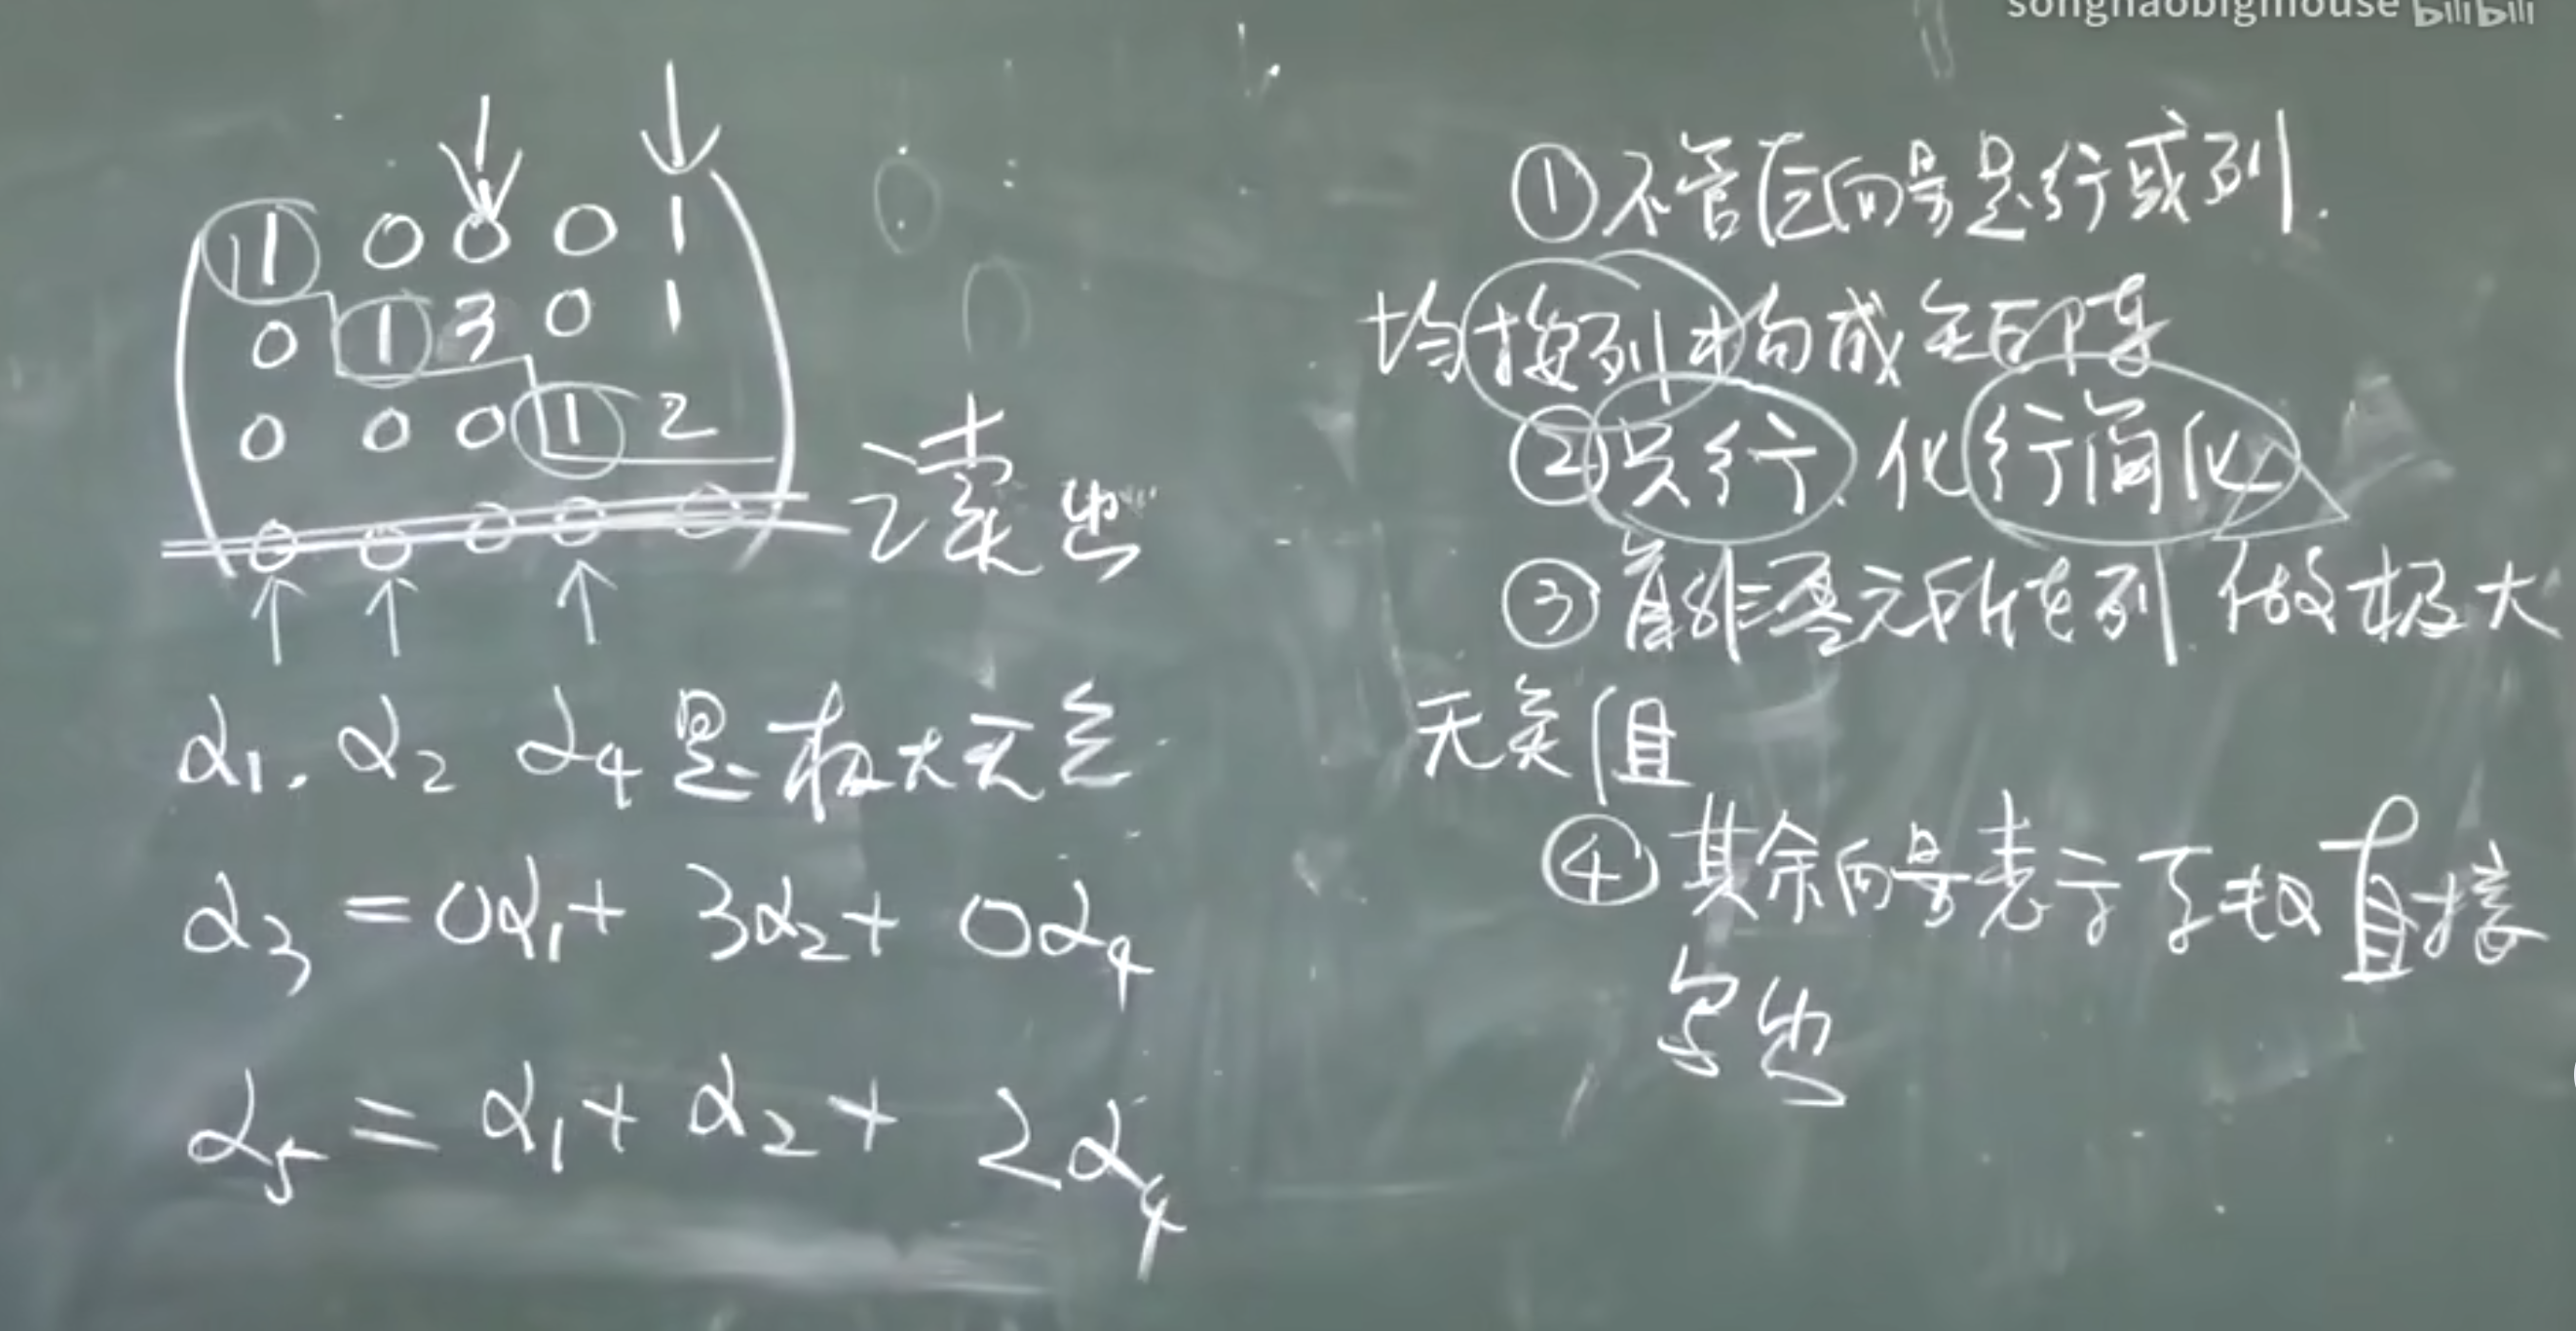 songhaobigmouse bilibili
1 0 0 0 1
0 1 3 0 1
0 0 0 1 2
0 0 0 0 0
读出
α₁. α₂ α₄是极大无关
α₃ = 0α₁ + 3α₂ + 0α₄
α₅ = α₁ + α₂ + 2α₄
①不管原向量是行或列.
均按列构成矩阵
②只行.化行简化
③首非零元所在列 做极大
无关组
④其余向量表示系数直接
写出